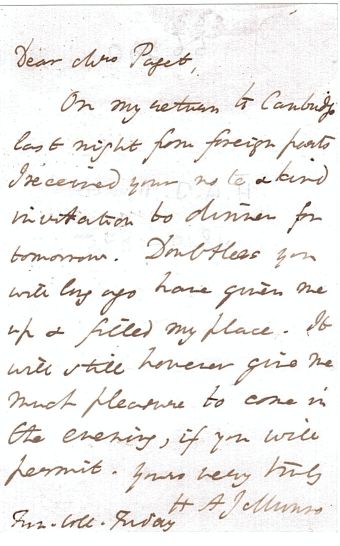 Dear Mrs Paget,
On my return to Cambridge
last night from foreign parts
I received your note & kind
invitation to dinner for
tomorrow. Doubtless you
will long ago have given me
up & filled my place. It
will still however give me
much pleasure to come in
the evening, if you will
permit. Yours very truly
H A J Munro
Trin. Coll. Friday